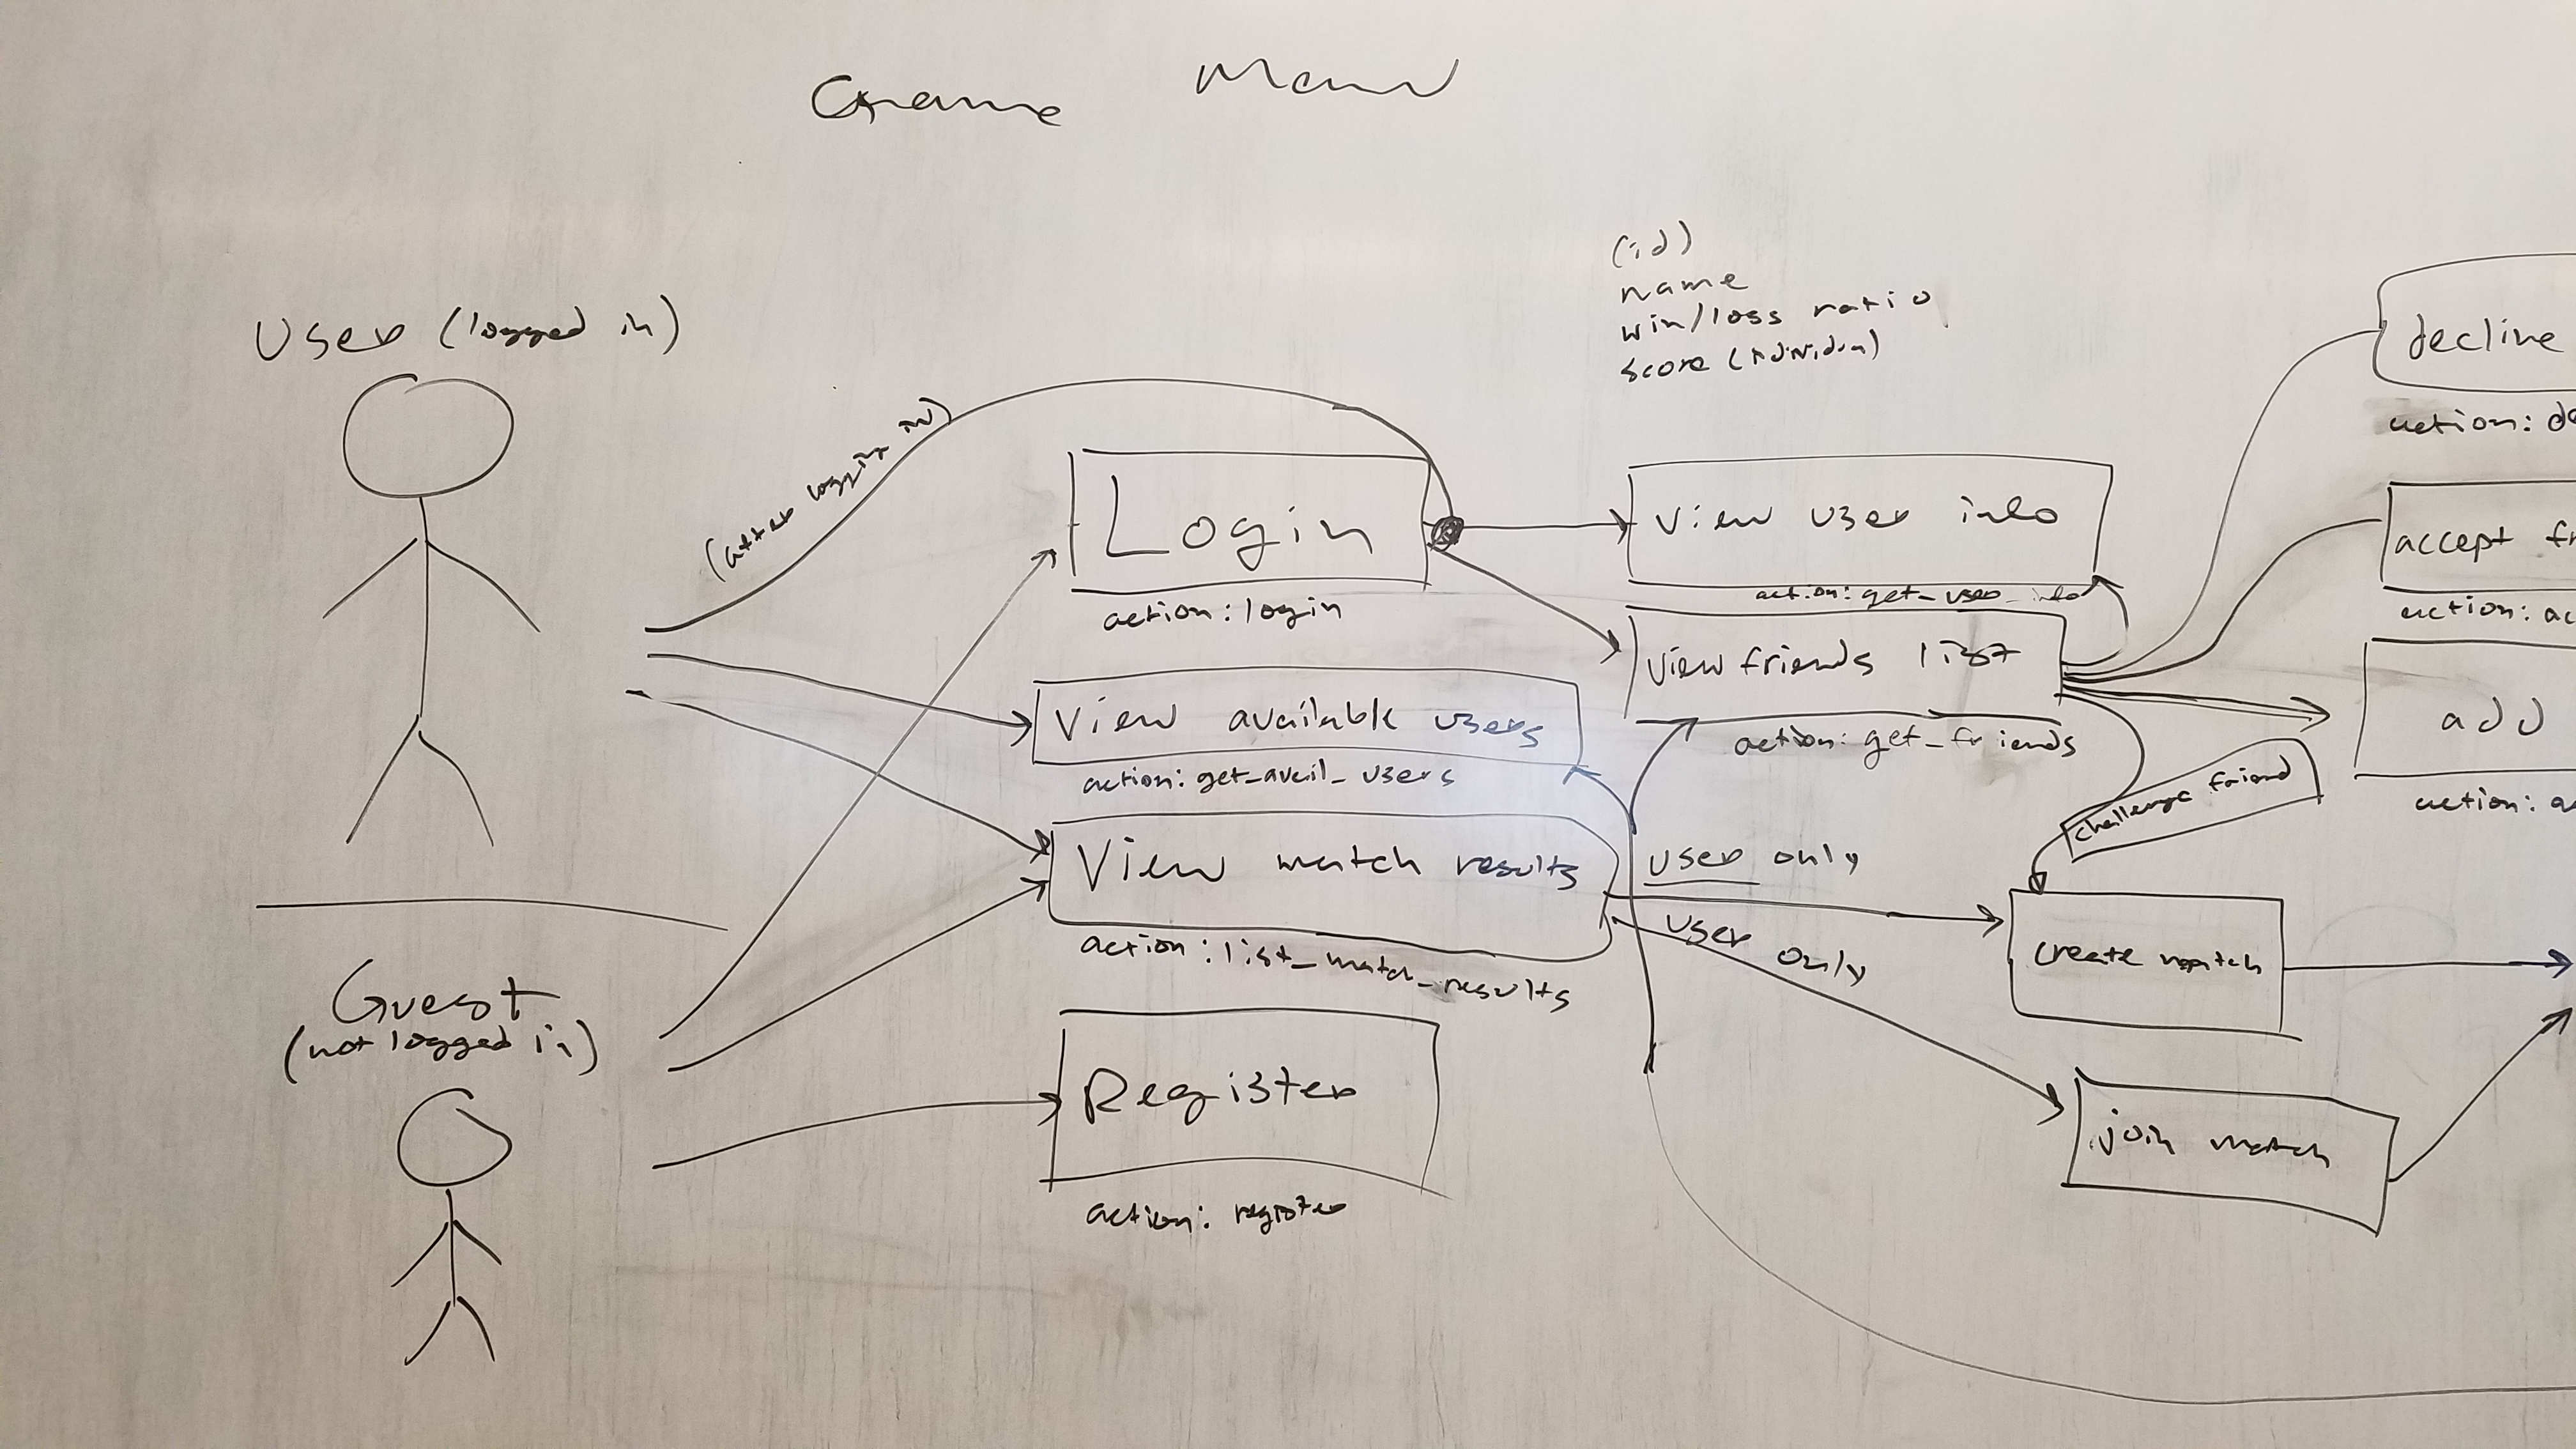 Game
User (logged in)
(after loggin in)
Login
action: login
View available users
action: get_avail_users
View match results
action: list_match_results
Guest
(not logged in)
Register
action: register
(id)
name
win/loss ratio
score
View user info
action: get_user_info
View friends list
action: get_friends
challenge friend
user only
user only
create match
join match
decline
action: de
accept fr
action: ac
add
action: a